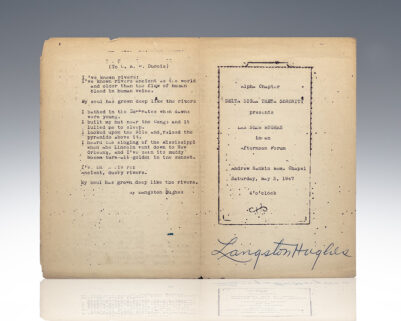 (To W. E. B. DuBois)
I've known rivers:
I've known rivers ancient as the world
and older than the flow of human
blood in human veins.
My soul has grown deep like the rivers
I bathed in the Euphrates when dawns
were young.
I built my hut near the Congo and it
lulled me to sleep.
I looked upon the Nile and raised the
pyramids above it.
I heard the singing of the Mississippi
when Abe Lincoln went down to New
Orleans, and I've seen its muddy
bosom turn all golden in the sunset.
I've known rivers
ancient, dusky rivers.
My soul has grown deep like the rivers.
By Langston Hughes
Alpha Chapter
DELTA SIGMA THETA SORORITY
presents
LANGSTON HUGHES
in an
Afternoon Forum
Andrew Rankin Mem. Chapel
Saturday, May 3, 1947
4 o'clock
Langston Hughes